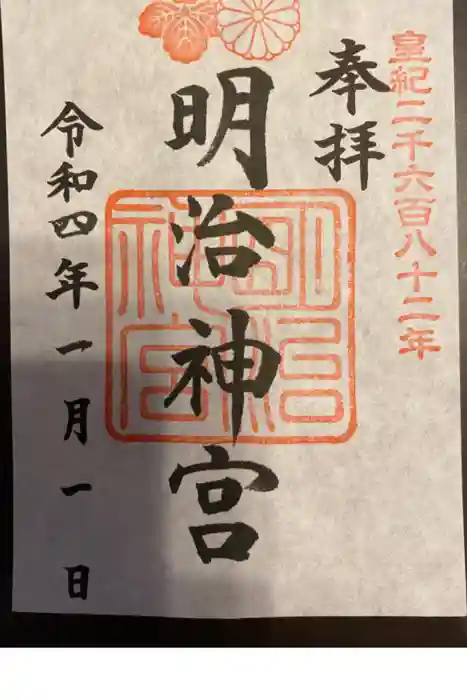 皇紀二千六百八十二年
奉拝
明治神宮
令和四年一月一日
明治神宮